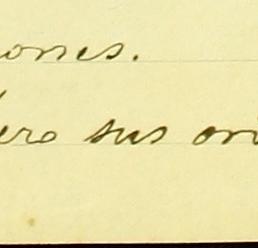 ones.
ero sus ori